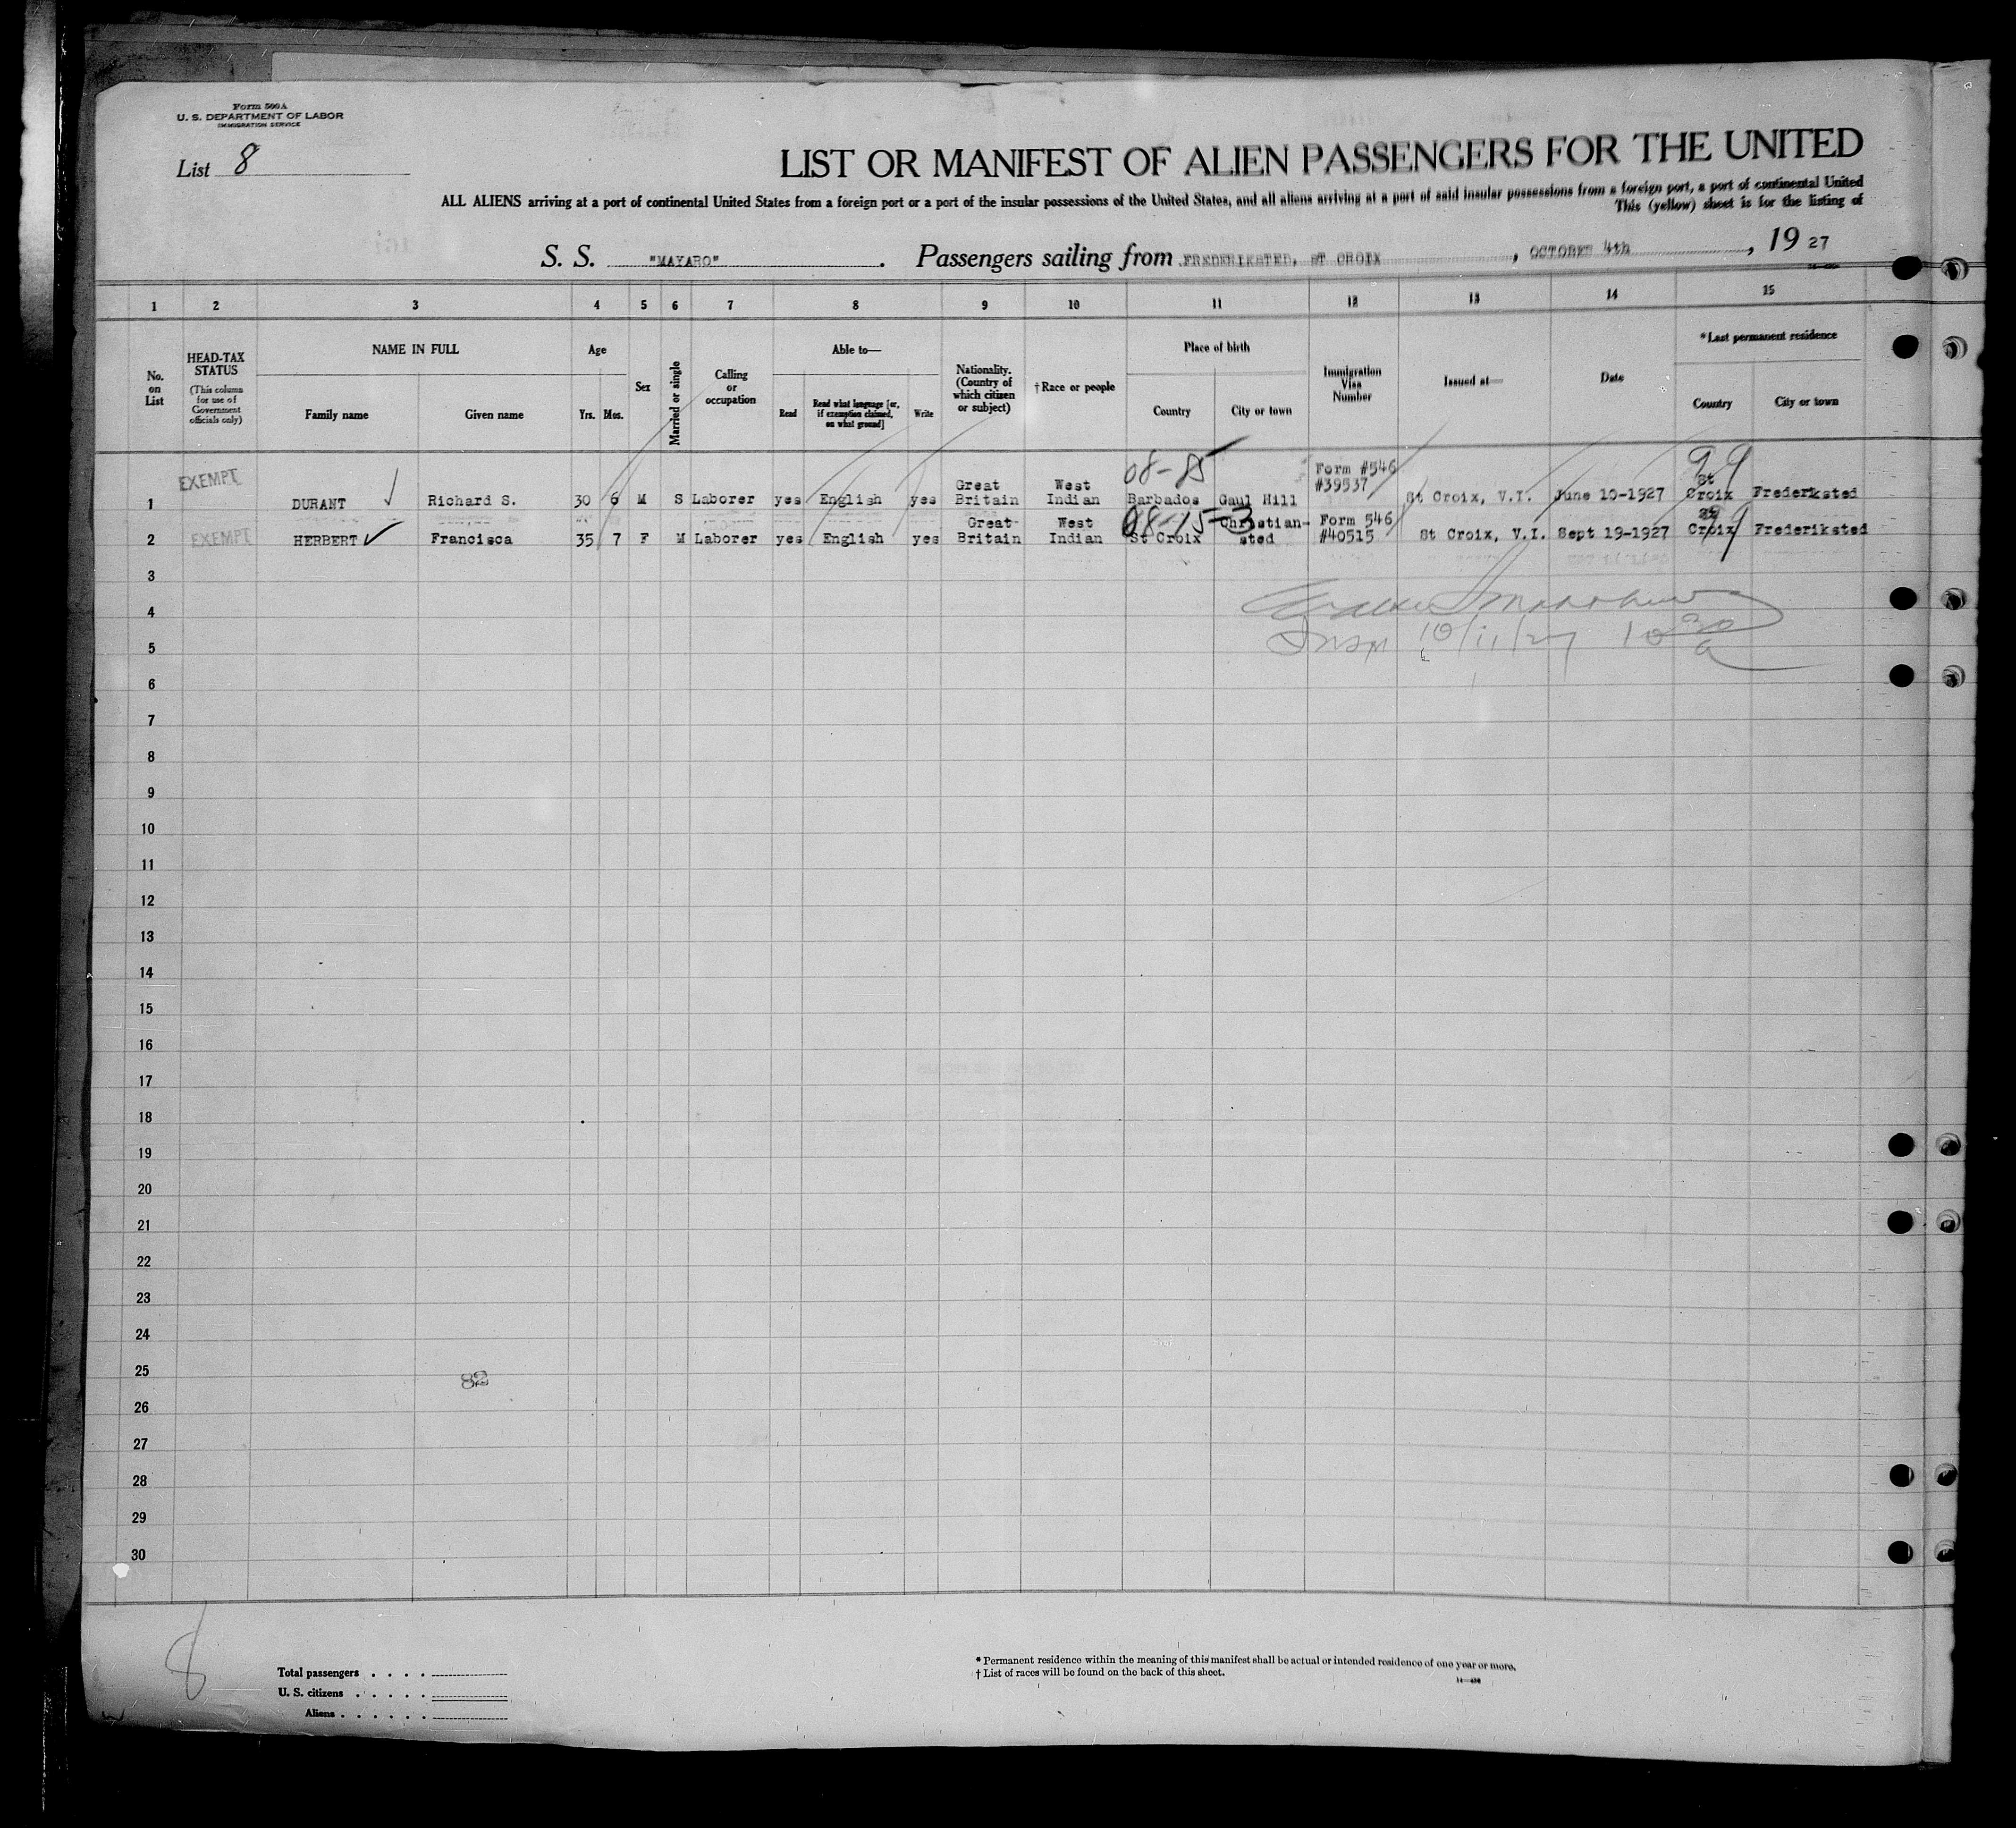 Form 500A
U. S. DEPARTMENT OF LABOR
IMMIGRATION SERVICE
List 8
LIST OR MANIFEST OF ALIEN PASSENGERS FOR THE UNITED
ALL ALIENS arriving at a port of continental United States from a foreign port or a port of the insular possessions of the United States, and all aliens arriving at a port of said insular possessions from a foreign port, a port of continental United
This (yellow) sheet is for the listing of
S. S. "MAYARO". Passengers sailing from FREDERIKSTED, ST CROIX, OCTOBER 4th, 19 27
1 2 3 4 5 6 7 8 9 10 11 12 13 14 15
No. on List
HEAD-TAX STATUS
(This column for use of Government officials only)
NAME IN FULL
Family name Given name
Age
Yrs. Mos.
Sex
Married or single
Calling or occupation
Able to—
Read Read what language [or, if exemption claimed, on what ground] Write
Nationality. (Country of which citizen or subject)
†Race or people
Place of birth
Country City or town
Immigration Visa Number
Issued at—
Date
*Last permanent residence
Country City or town
08-85 99
1 EXEMPT DURANT Richard S. 30 6 M S Laborer yes English yes Great Britain West Indian Barbados Gaul Hill Form #546 #39537 St Croix, V.I. June 10-1927 St Croix Frederiksted
08-15-3
2 EXEMPT HERBERT Francisca 35 7 F M Laborer yes English yes Great Britain West Indian St Croix Christian-sted Form 546 #40515 St Croix, V.I. Sept 19-1927 St Croix Frederiksted
3
4
Insp 10/11/27 10 30 a
5
6
7
8
9
10
11
12
13
14
15
16
17
18
19
20
21
22
23
24
25
82
26
27
28
29
30
8
Total passengers . . . .
U. S. citizens . . . . .
Aliens . . . . . .
* Permanent residence within the meaning of this manifest shall be actual or intended residence of one year or more.
† List of races will be found on the back of this sheet.